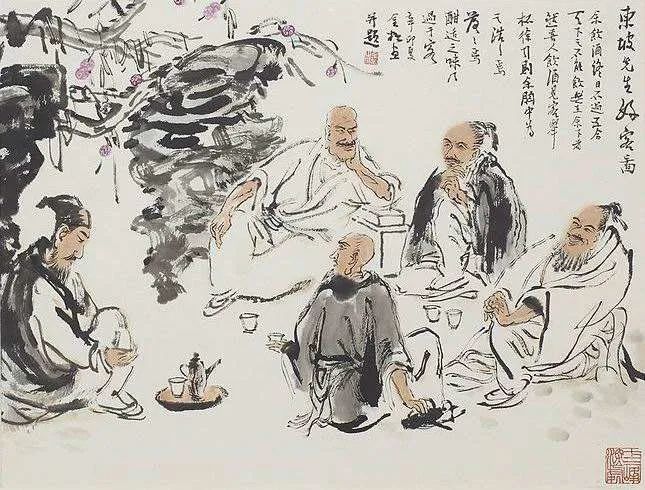 東坡先生好客圖
余飲酒終日不過五合
天下之不能飲無在余下者
然喜人飲酒見客舉
杯徐引則余胸中為
之浩々焉
落々焉
酣適之味乃
過于客
辛卯夏
并題